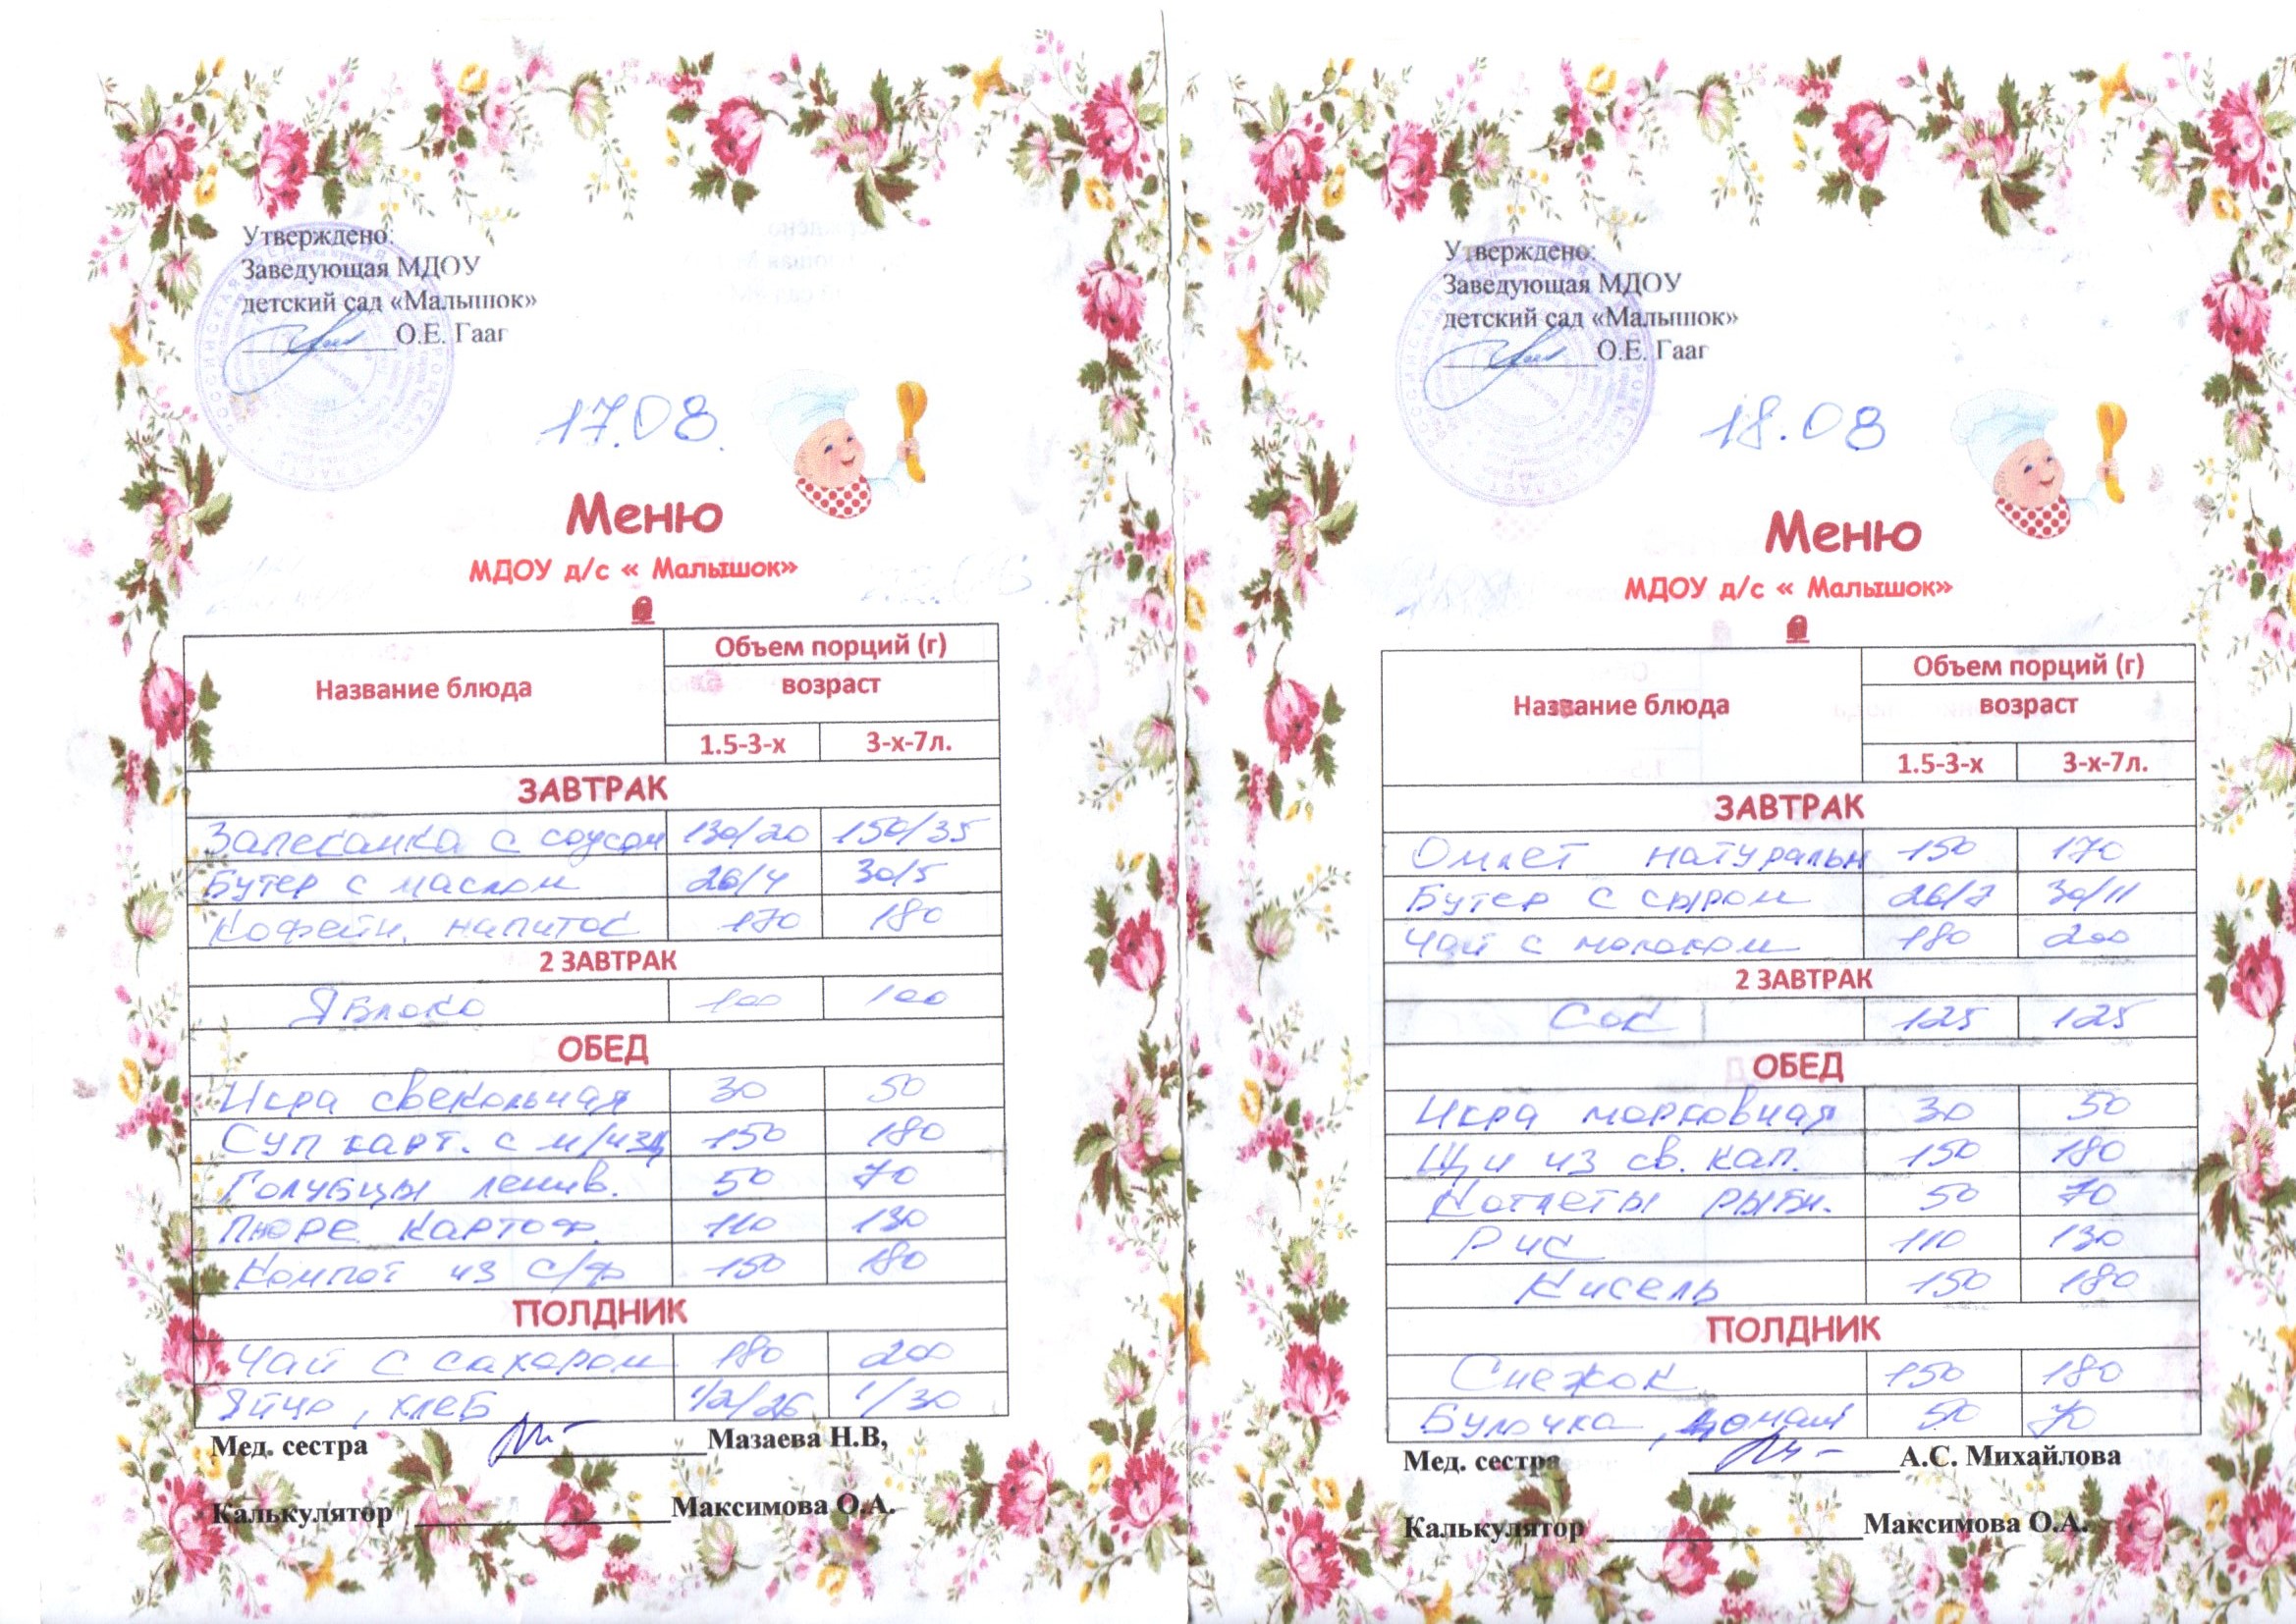 Утверждено:
Заведующая МДОУ
детский сад «Малышок»
О.Е. Гааг
17.08.
Меню
МДОУ д/с « Малышок»
Название блюда
Объем порций (г)
возраст
1.5-3-х 3-х-7л.
ЗАВТРАК
Запеканка с соусом 130/20 150/35
Бутер с маслом 26/4 30/5
Кофейн. напиток 170 180
2 ЗАВТРАК
Яблоко 100 100
ОБЕД
Икра свекольная 30 50
Суп карт. с м/изд 150 180
Голубцы ленив. 50 70
Пюре картоф. 110 130
Компот из с/ф 150 180
ПОЛДНИК
Чай с сахаром 180 200
Яйцо, хлеб 1/2/26 1/30
Мед. сестра Мазаева Н.В,
Калькулятор Максимова О.А.
Утверждено:
Заведующая МДОУ
детский сад «Малышок»
О.Е. Гааг
18.08
Меню
МДОУ д/с « Малышок»
Название блюда
Объем порций (г)
возраст
1.5-3-х 3-х-7л.
ЗАВТРАК
Омлет натуральн 150 170
Бутер с сыром 26/7 30/11
Чай с молоком 180 200
2 ЗАВТРАК
Сок 125 125
ОБЕД
Икра морковная 30 50
Щи из св. кап. 150 180
Котлеты рыбн. 50 70
Рис 110 130
Кисель 150 180
ПОЛДНИК
Снежок 150 180
Булочка домаш 50 70
Мед. сестра А.С. Михайлова
Калькулятор Максимова О.А.